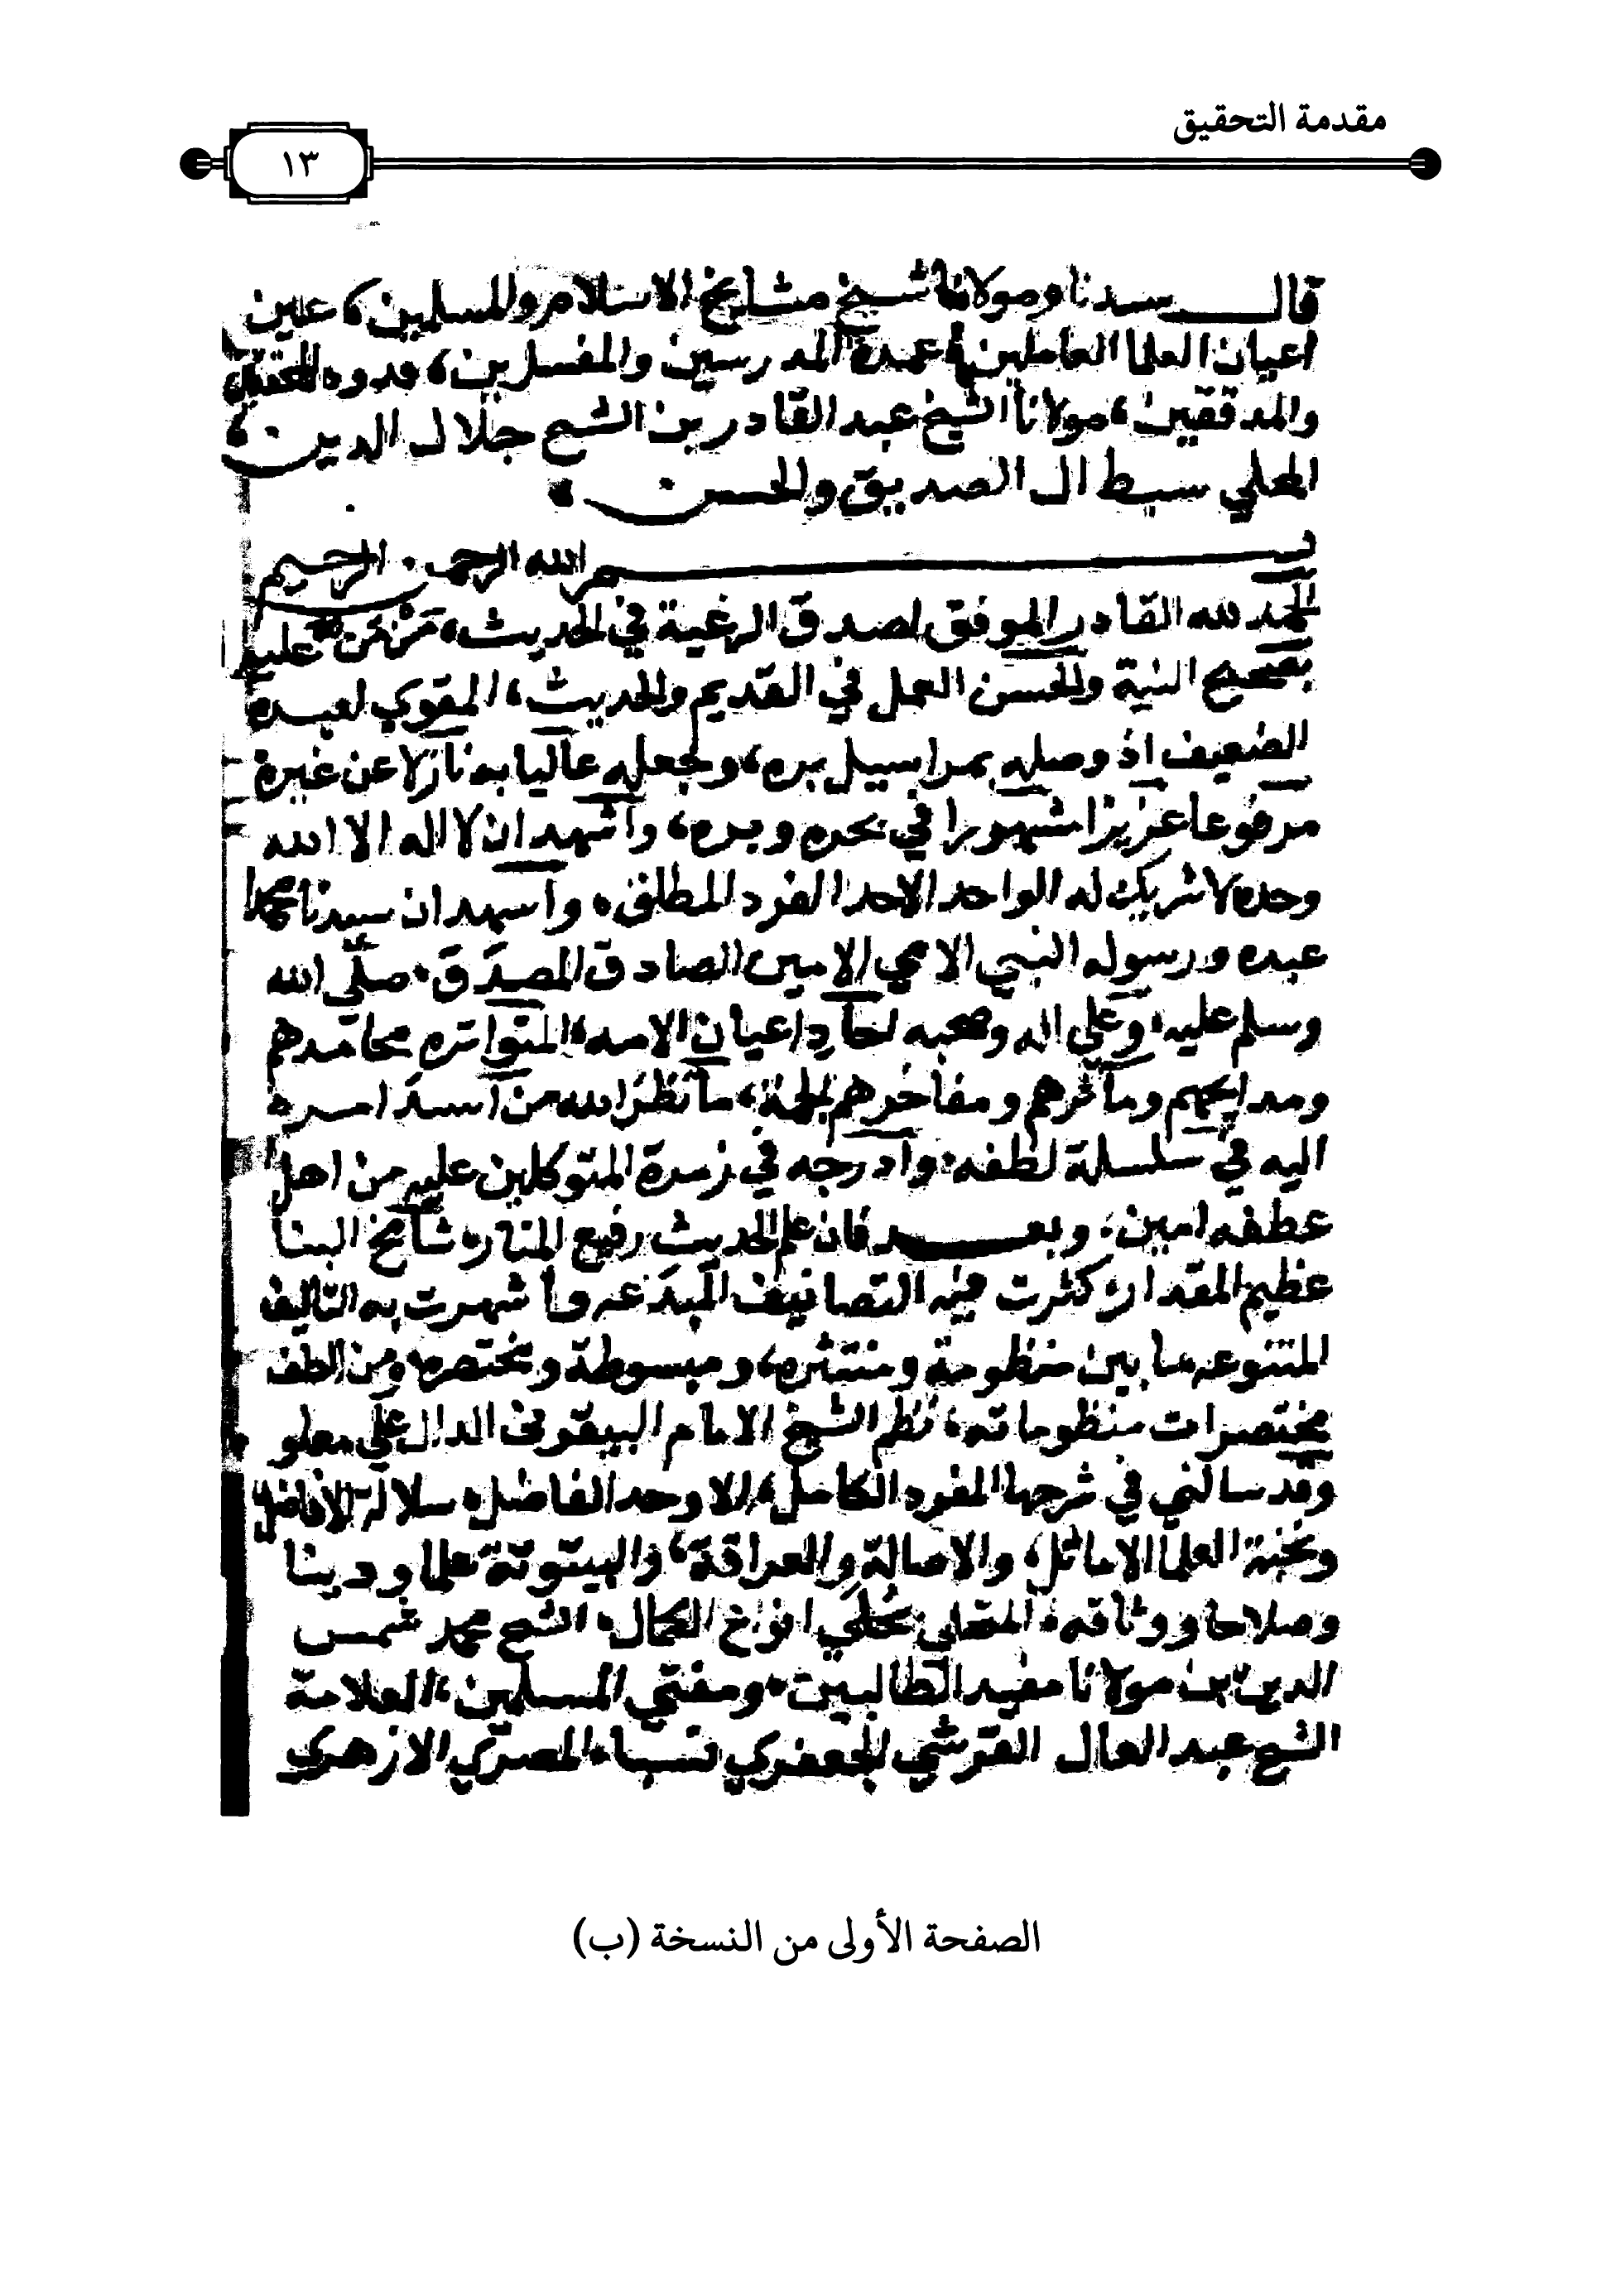 مقدمة التحقيق
١٣
قال سيدنا ومولانا شيخ مشايخ الاسلام والمسلمين، عين
اعيان العلما العاملين، عمدة المدرسين والمفسرين، قدوه المحققين
والمدققين، مولانا الشيخ عبد القادر بن الشيخ جلال الدين،
المحلي سبط ال الصديق والحسن،
بسم الله الرحمن الرحيم
الحمد لله القادر الموفق لصدق الرغبة في الحديث، من من عليه
بصحيح النية والحسن العمل في القديم والحديث، المقوي لعبده
الضعيف اذ وصله بمراسيل بره، وجعله عاليا به نازلا عن غيره
مرفوعا عزيزا مشهورا في بحره وبره، واشهد ان لا اله الا الله
وحده لا شريك له الواحد الاحد الفرد المطلق، واسهد ان سيدنا محمدا
عبده ورسوله النبي الامي الامين الصادق المصدق، صلى الله
وسلم عليه، وعلى اله وصحبه احاد اعيان الامه، المتواتره محامدهم
ومدايحهم ومآثرهم ومفاخرهم الجمة، ما نظر الله من اسند امره
اليه في سلسلة لطفه، وادرجه في زمرة المتوكلين عليه من اهل
عطفه امين، وبعد فان علم الحديث رفيع المنار، شامخ البنا
عظيم المقدار، كثرت فيه التصانيف المبدعه واشهرت به التاليف
المتنوعه ما بين منظومة ومنتثره، ومبسوطة ومختصره، ومن الطف
مختصرات منظوماته، نظم الشيخ الامام البيقوني الدال على معلو
وقد سالني في شرحها المفرد الكامل، الاوحد الفاضل، سلالة الافاضل
ونخبة العلما الاماثل، والاصالة والعراقة، والبيتوتة علما ودينا
وصلاحا ووثاقه، المتحلي بحلي انواع الكمال، الشيخ محمد شمس
الدين بن مولانا مفيد الطالبين، ومفتي المسلمين، العلامة
الشيخ عبد العال القرشي الجعفري نسبا، المصري الازهري
الصفحة الأولى من النسخة (ب)